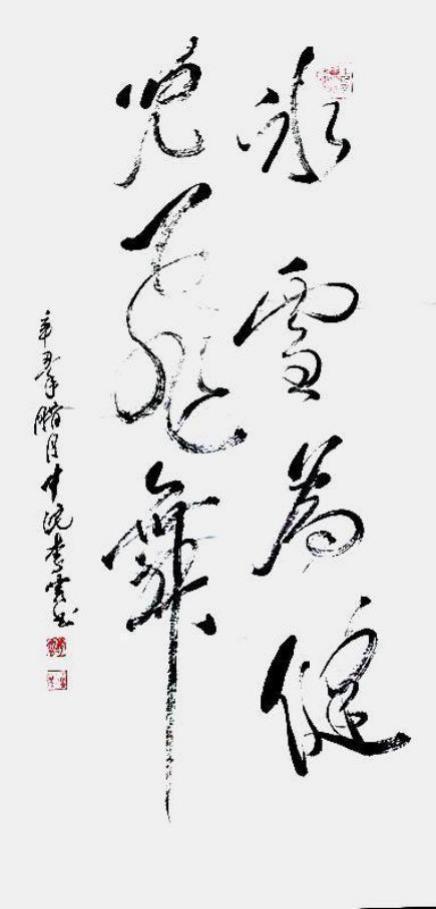 冰雪为健
兒飛舞
辛丑年腊月中浣李雲书